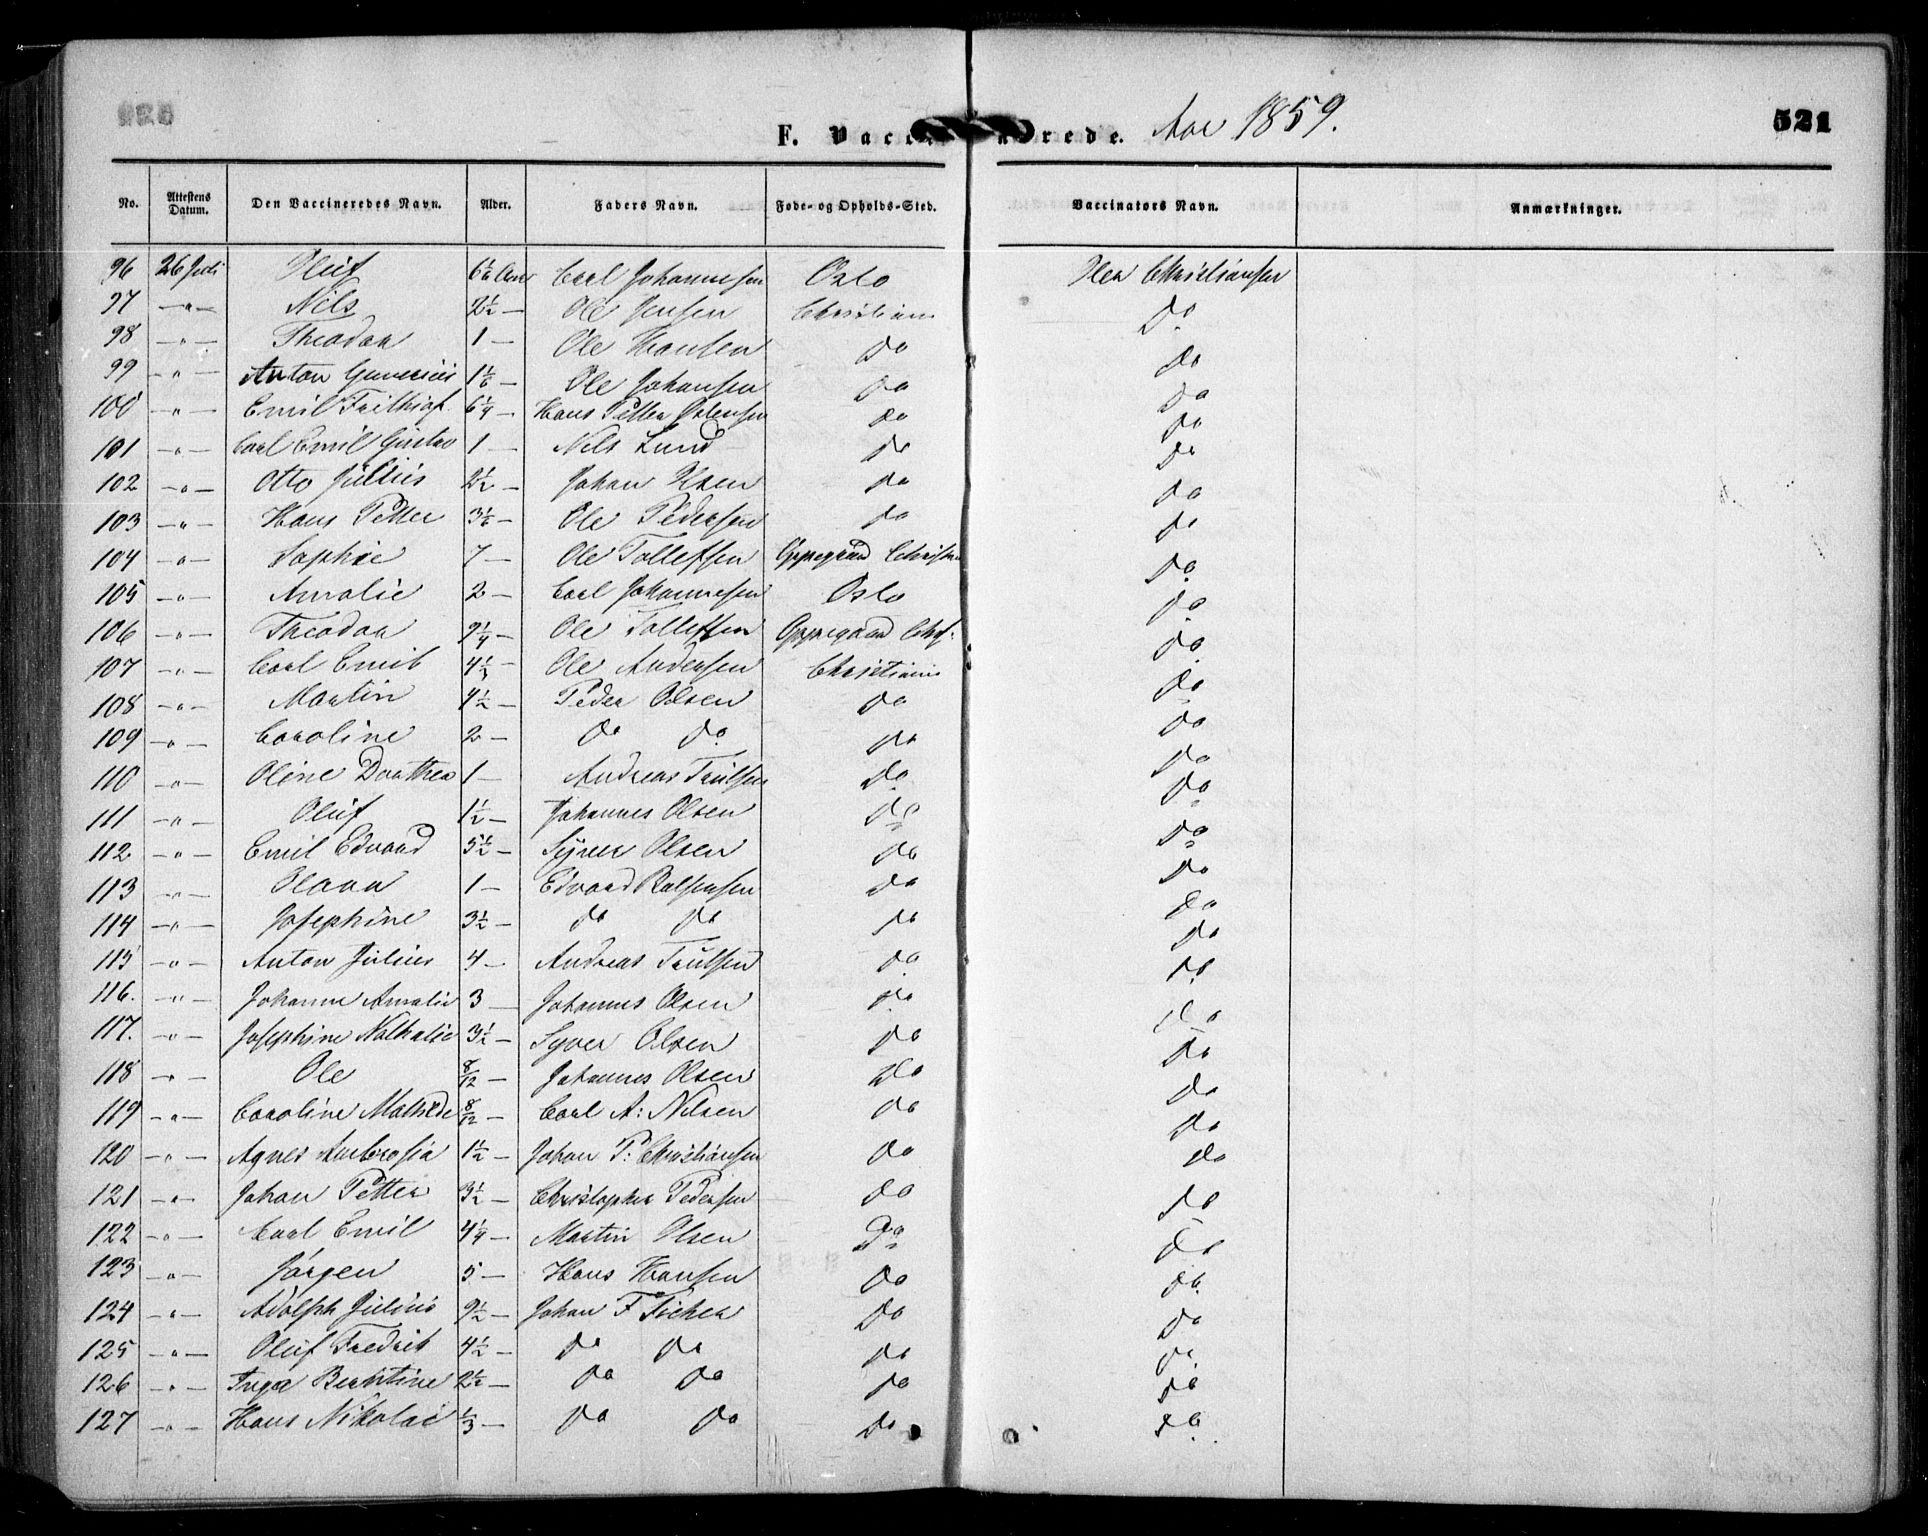 F. Vacc nerede. Aar 1859.
521
No. Attestens Datum. Den Vaccineredes Navn. Alder. Faders Navn. Føde- og Opholds-Sted. Vaccinators Navn. Anmærkninger.
96 26 Juli Oluf 6 1/2 Aar Carl Johannesen Oslo Christiansen
97 -"- Nils 2 1/2 - Ole Jensen Christiania Do
98 -"- Theodor 1 - Ole Hansen Do Do
99 -"- Anton Gunerius 1 1/6 - Ole Johansen Do Do
100 -"- Emil Frithiof 6 1/4 - Hans Petter Do Do
101 -"- Carl Emil Gustav 1 - Nils Lund Do Do
102 -"- Otto Julius 2 1/2 - Johan Do Do
103 -"- Hans Petter 3 1/2 - Ole Pedersen Do Do
104 -"- Sophie 7 - Ole Tollefsen Oppegaard Do
105 -"- Amalie 2 - Carl Johannesen Oslo Do
106 -"- Theodor 9 1/4 - Ole Tollefsen Oppegaard Do
107 -"- Carl Emil 4 1/3 - Ole Andersen Christiania Do
108 -"- Martin 4 1/2 - Peder Olsen Do Do
109 -"- Caroline 2 - Do Do Do Do
110 -"- Oline Dorthea 1 - Andreas Trulsen Do Do
111 -"- Oluf 1 1/2 - Johannes Olsen Do Do
112 -"- Emil Edvard 5 1/2 - Syver Olsen Do Do
113 -"- 1 - Edvard Do Do
114 -"- Josephine 3 1/2 - Do Do Do Do
115 -"- Anton Julius 4 - Andreas Trulsen Do Do
116. -"- Johanne Amalie 3 - Johannes Olsen Do Do
117. -"- Josephine Nathalie 3 1/2 - Syver Olsen Do Do
118 -"- Ole 8/12 - Johannes Olsen Do Do
119 -"- Caroline Mathilde 8/12 - Carl A: Nilsen Do Do
120 -"- Agnes Ambrosia 1 1/2 - Johan P: Christiansen Do Do
121 -"- Johan Petter 3 1/2 - Christopher Pedersen Do Do
122 -"- Carl Emil 4 1/4 - Martin Olsen Do Do
123 -"- Jørgen 5 - Hans Hansen Do Do
124 -"- Adolph Julius 9 1/2 - Johan F Do Do
125 -"- Oluf Fredrik 4 1/2 - Do Do Do Do
126 -"- Inga Berntine 2 1/2 - Do Do Do Do
127 -"- Hans Nikolai 1/3 - Do Do Do Do